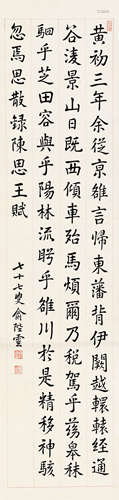 黄初三年余從京雒言歸東藩背伊闕越轘轅經通
谷淩景山日既西傾車殆馬煩爾乃税駕乎蘅皋秣
駟乎芝田容與乎陽林流眄乎雒川於是精移神駭
忽焉思散録陳思王賦
七十七叟俞陛雲